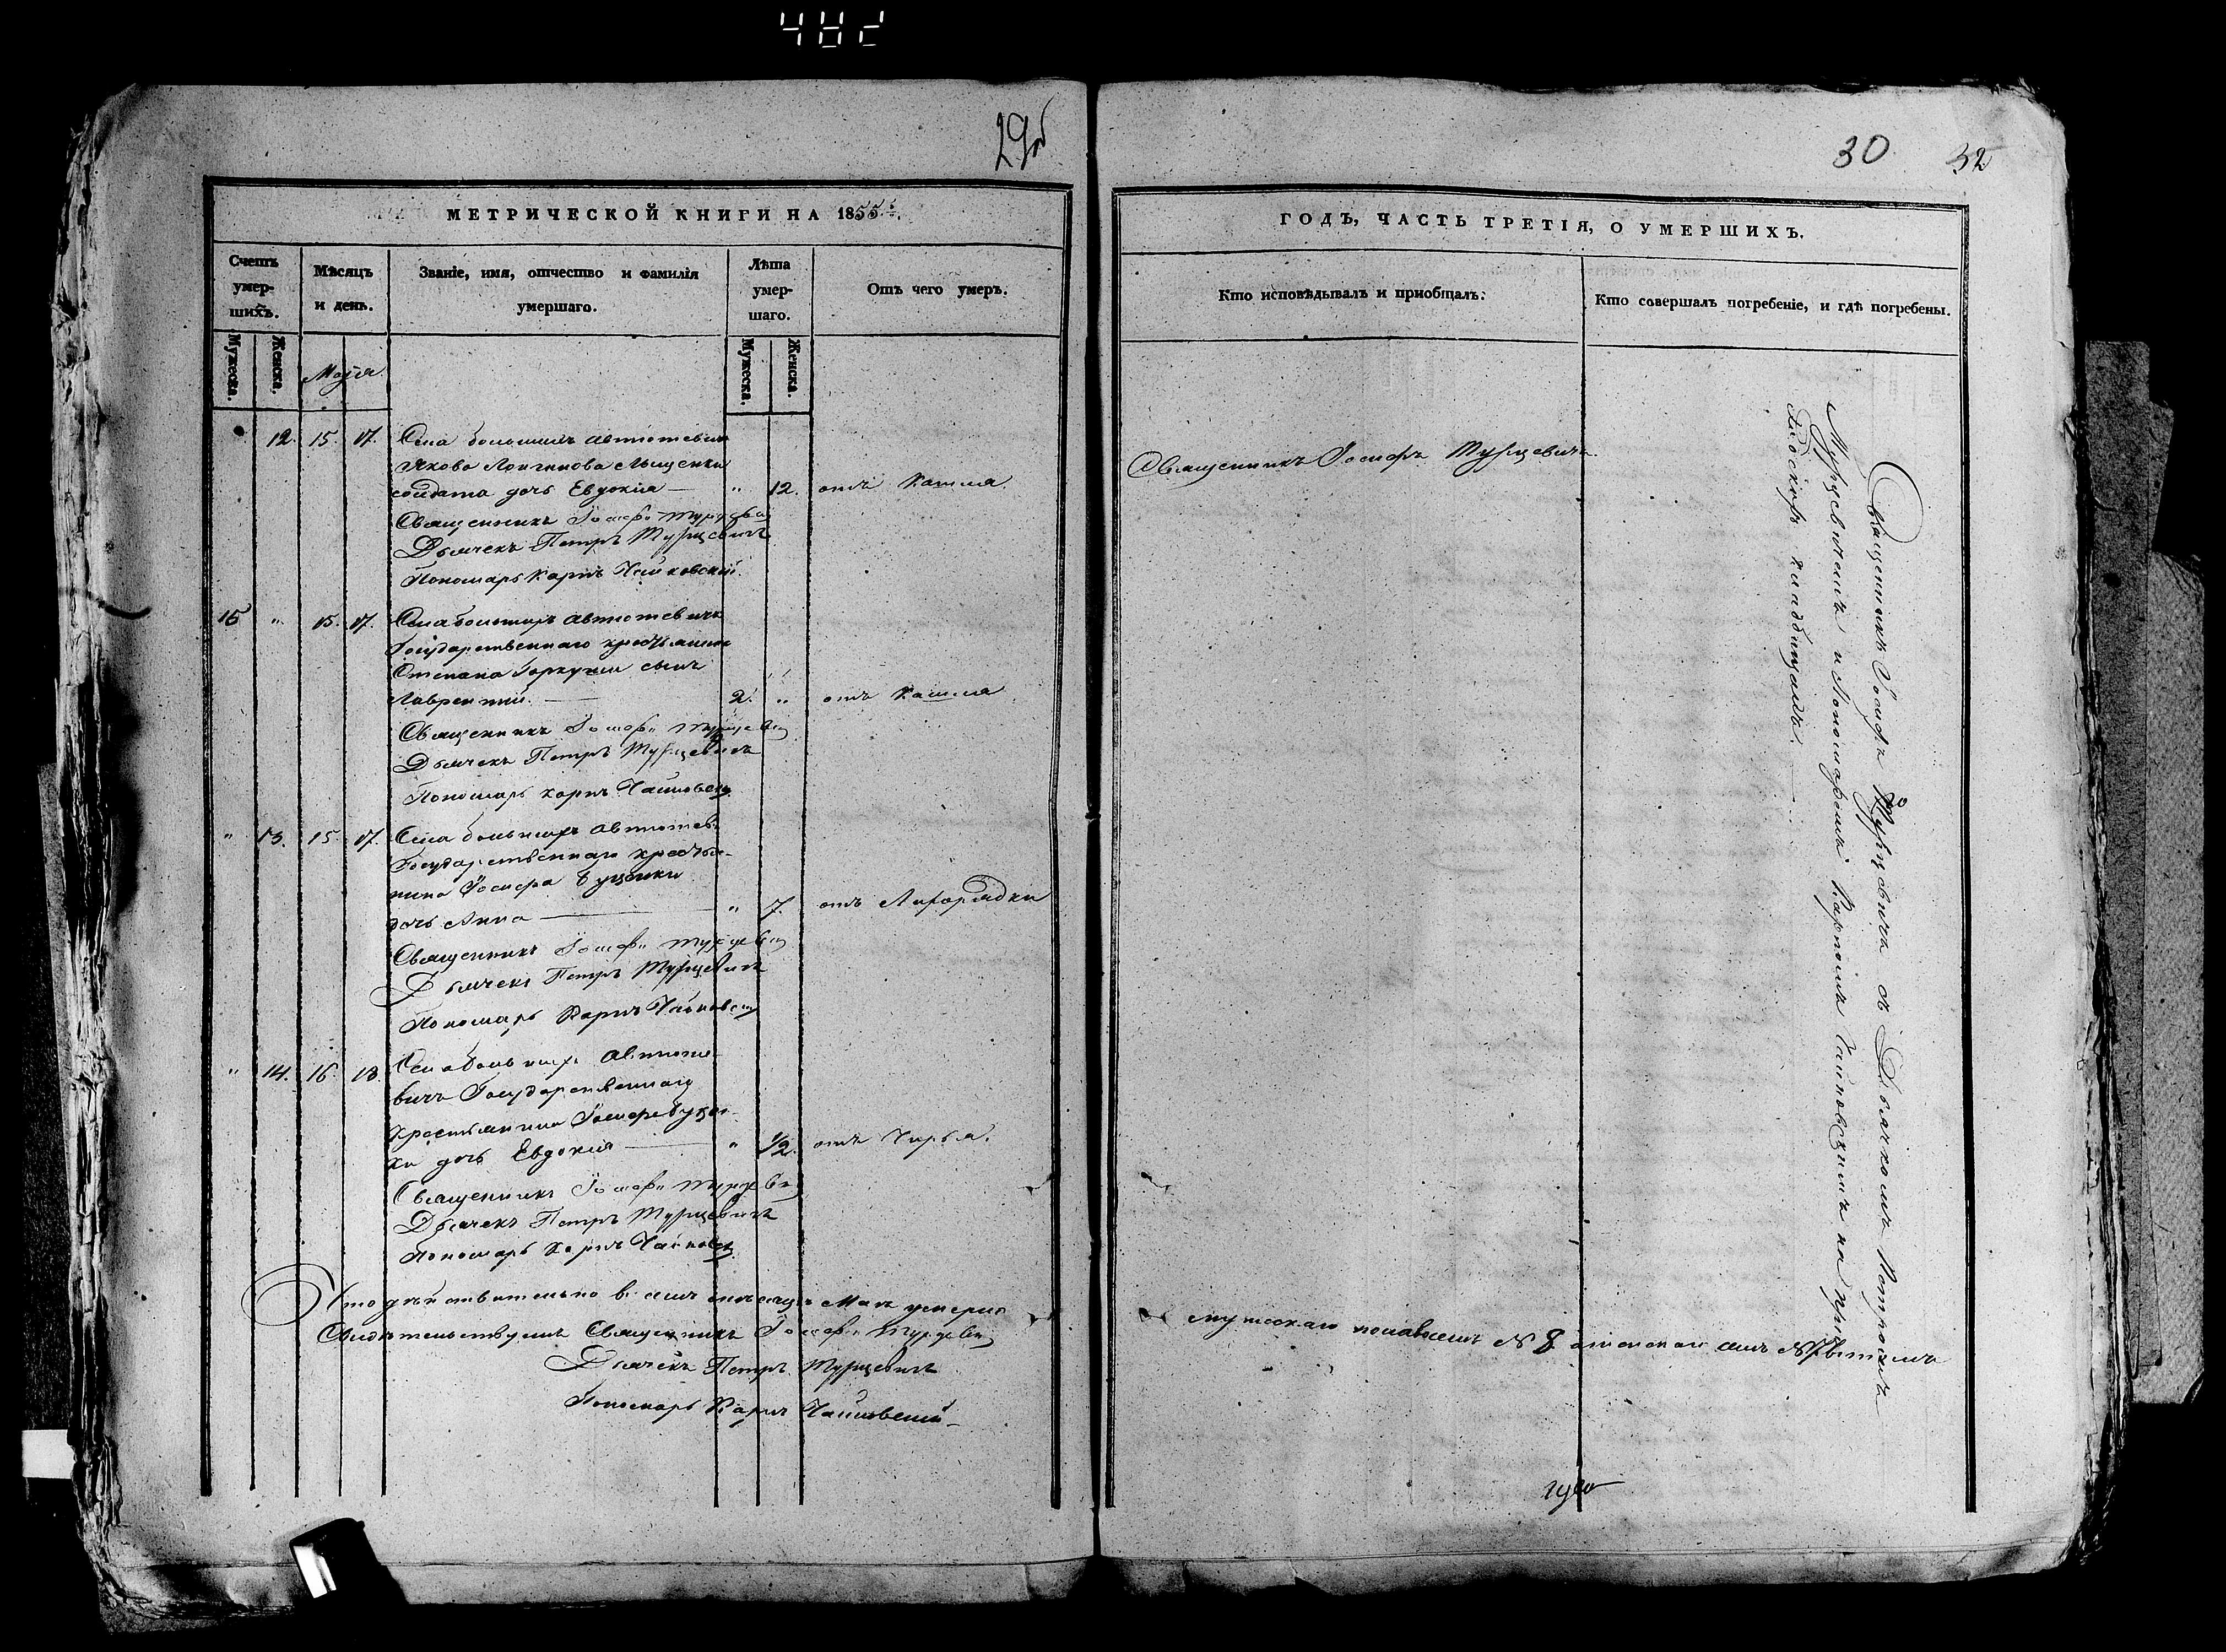 482
29об
МЕТРИЧЕСКОЙ КНИГИ НА 1855
Счетъ умер-шихъ.
Мѣсяцъ и день.
Званіе, имя, отчество и фамилія умершаго.
Лѣта умер-шаго.
Отъ чего умеръ.
Мужеска.
Женска.
Маія
Мужеска.
Женска.
12. 15. 17. Села большихъ Автютевичъ
Якова Лонгинова
солдата дочь Евдокія — " 12. отъ Кашля.
Священникъ Іосифъ Турцевичъ
Дьячекъ Петръ Турцевичъ
Пономарь Карпъ Чайковскій.
15 " 15. 17. Села большихъ Автютевичъ
Государственнаго крестьянина
Степана сынъ
Лаврентій. — 2. " отъ Кашля
Священникъ Іосифъ Турцевичъ
Дьячекъ Петръ Турцевичъ
Пономарь Карпъ Чайковскій
" 13. 15. 17. Села большихъ Автютев.
Государственнаго крестья-
нина Іосифа
дочь Анна — " 7. отъ Лихорадки
Священникъ Іосифъ Турцевичъ
Дьячекъ Петръ Турцевичъ
Пономарь Карпъ Чайковскій
" 14. 16. 18. Села большихъ Автюте-
вичъ Государственнаго
крестьянина Іосифа
ки дочь Евдокія — " 1/2. отъ Чирья.
Священникъ Іосифъ Турцевичъ
Дьячекъ Петръ Турцевичъ
Пономарь Карпъ Чайковскій
Что дѣйствительно въ семъ мѣсяцѣ Маѣ умерло
Свидѣтельствуемъ Священникъ Іосифъ Турцевичъ
Дьячекъ Петръ Турцевичъ
Пономарь Карпъ Чайковскій
30 32
ГОДЪ, ЧАСТЬ ТРЕТІЯ, О УМЕРШИХЪ.
Кто исповѣдывалъ и пріобщалъ.
Кто совершалъ погребеніе, и гдѣ погребены.
Священникъ Іосифъ Турцевичъ.
Священникъ Іосифъ Турцевичъ съ Дьячкомъ Петромъ
Турцевичемъ и Пономаремъ Карпомъ Чайковскимъ на при-
ходскомъ кладбищѣ.
мужескаго пола № 8 а женскаго